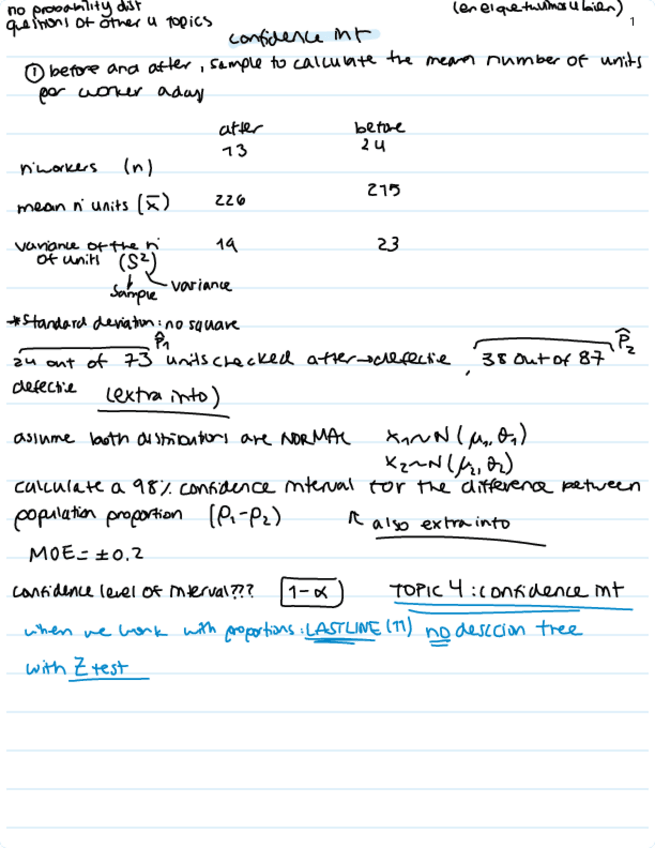 no probability dist
questions of other 4 topics
(en el que tuvimos u bien)
1
confidence int
① before and after, sample to calculate the mean number of units
per worker a day
after before
13 24
n'workers (n)
mean n' units (x̄) 226 215
variance of the n' 19 23
of units (S²)
sample variance
*Standard deviation: no square
P̂1 P̂2
24 out of 73 units checked after→defectie, 38 out of 87
defectie (extra into)
assume both distributions are NORMAL X1~N(μ1, θ1)
X2~N(μ2, θ2)
calculate a 98% confidence interval for the difference between
population proportion (P1-P2) ↖ also extra into
MOE= ±0.2
confidence level of interval??? 1-α TOPIC 4: confidence int
when we work with proportions: LAST LINE (11) no descion tree
with Z test